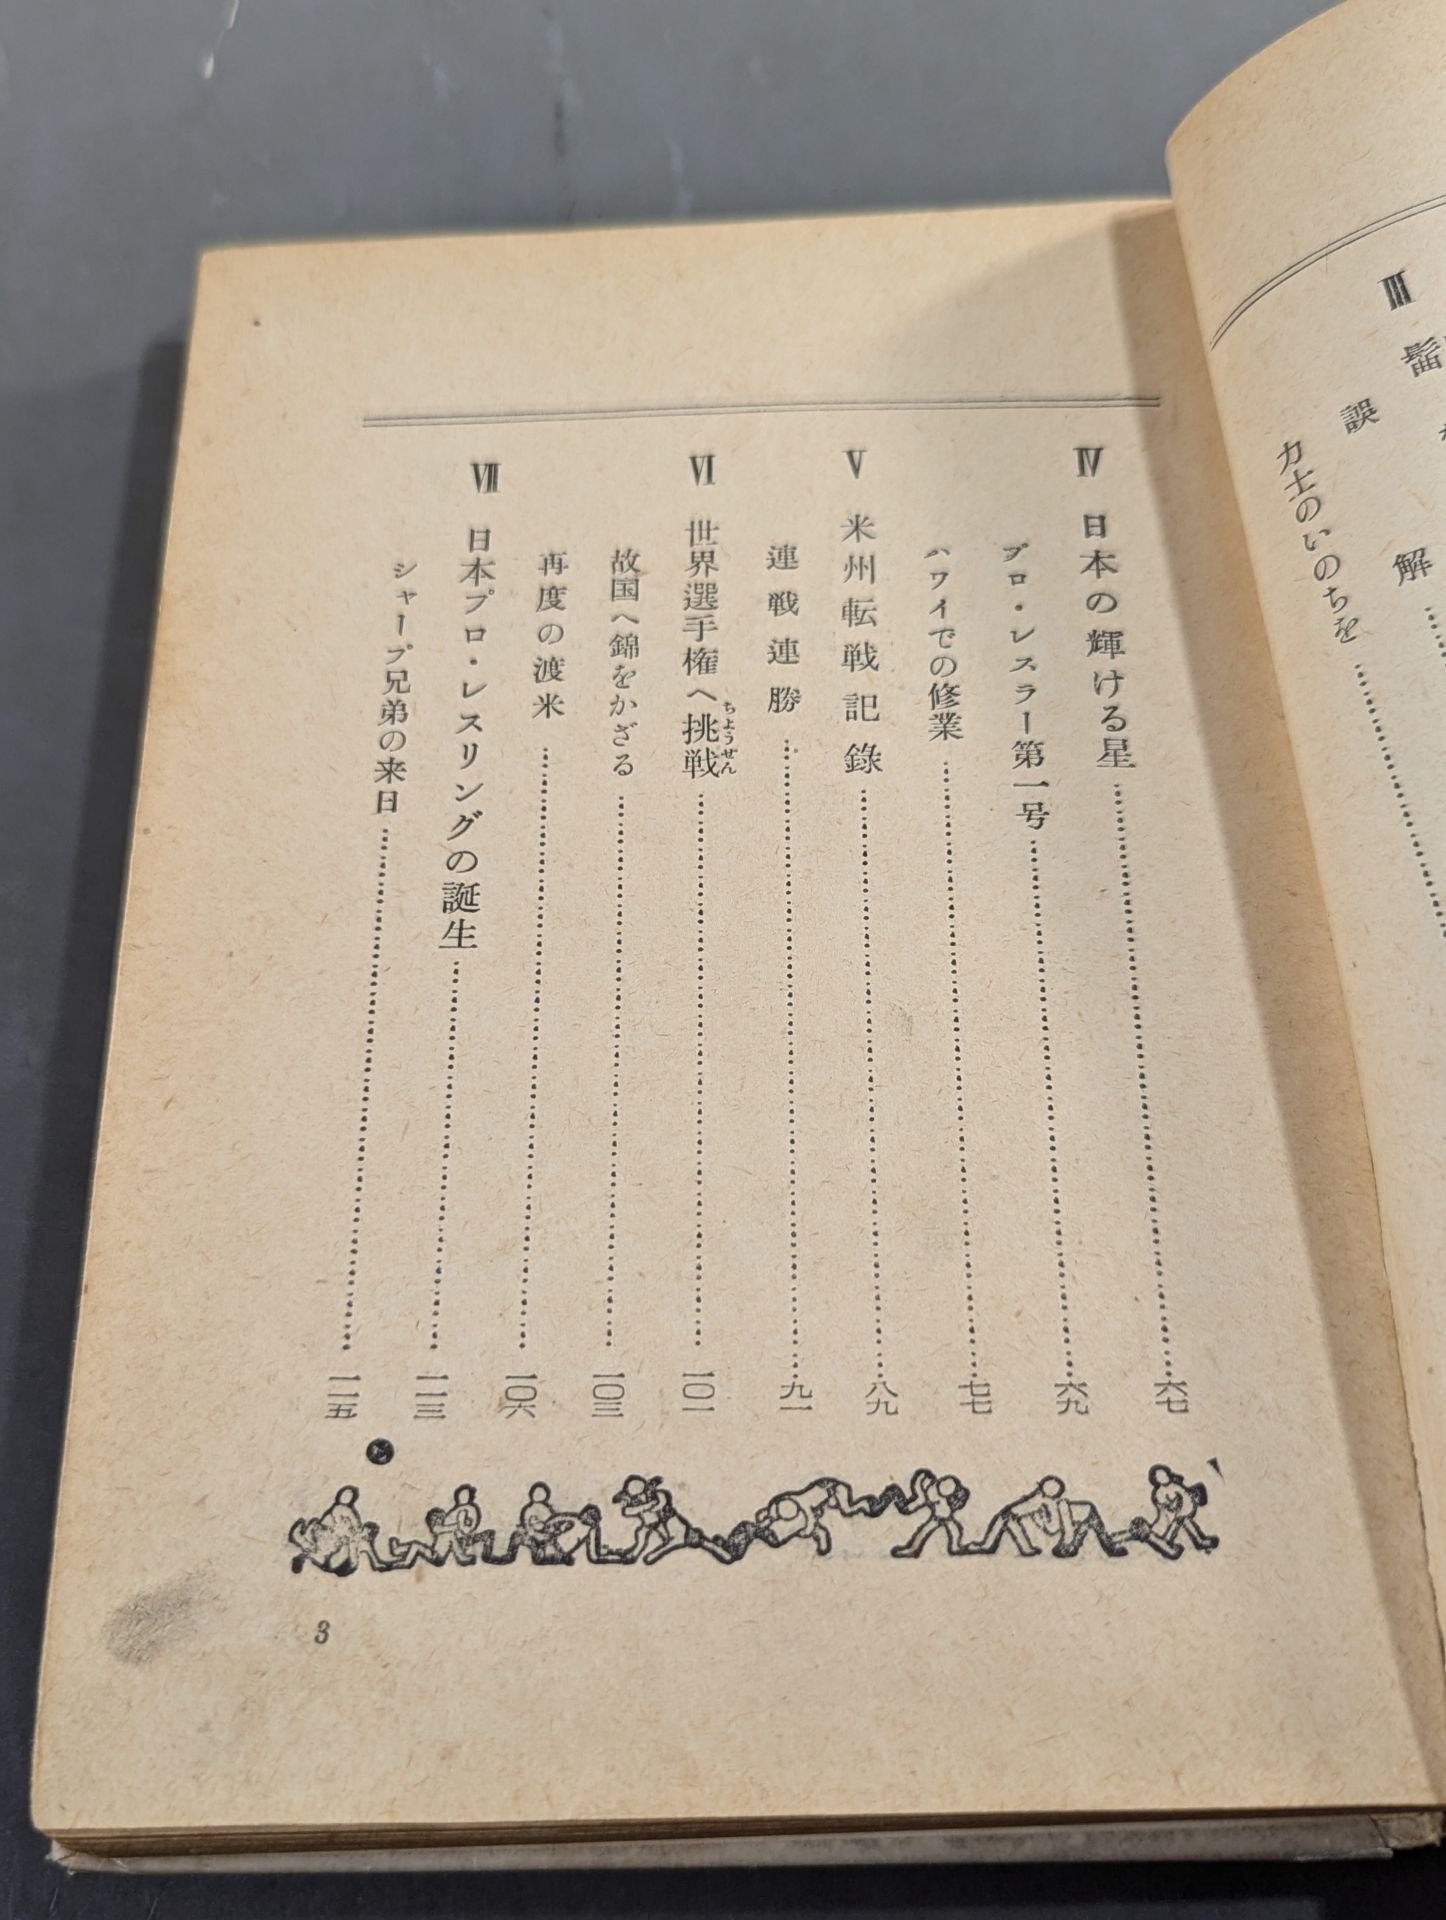 Ⅲ
誤解
力士のいのちを
Ⅳ 日本の輝ける星 六七
プロ・レスラー第一号 六九
ハワイでの修業 七七
Ⅴ 米州転戦記錄 八九
連戦連勝 九一
Ⅵ 世界選手権へ挑戦 一〇一
ちようせん
故国へ錦をかざる 一〇三
再度の渡米 一〇六
Ⅶ 日本プロ・レスリングの誕生 一一三
シャープ兄弟の来日 一一五
3